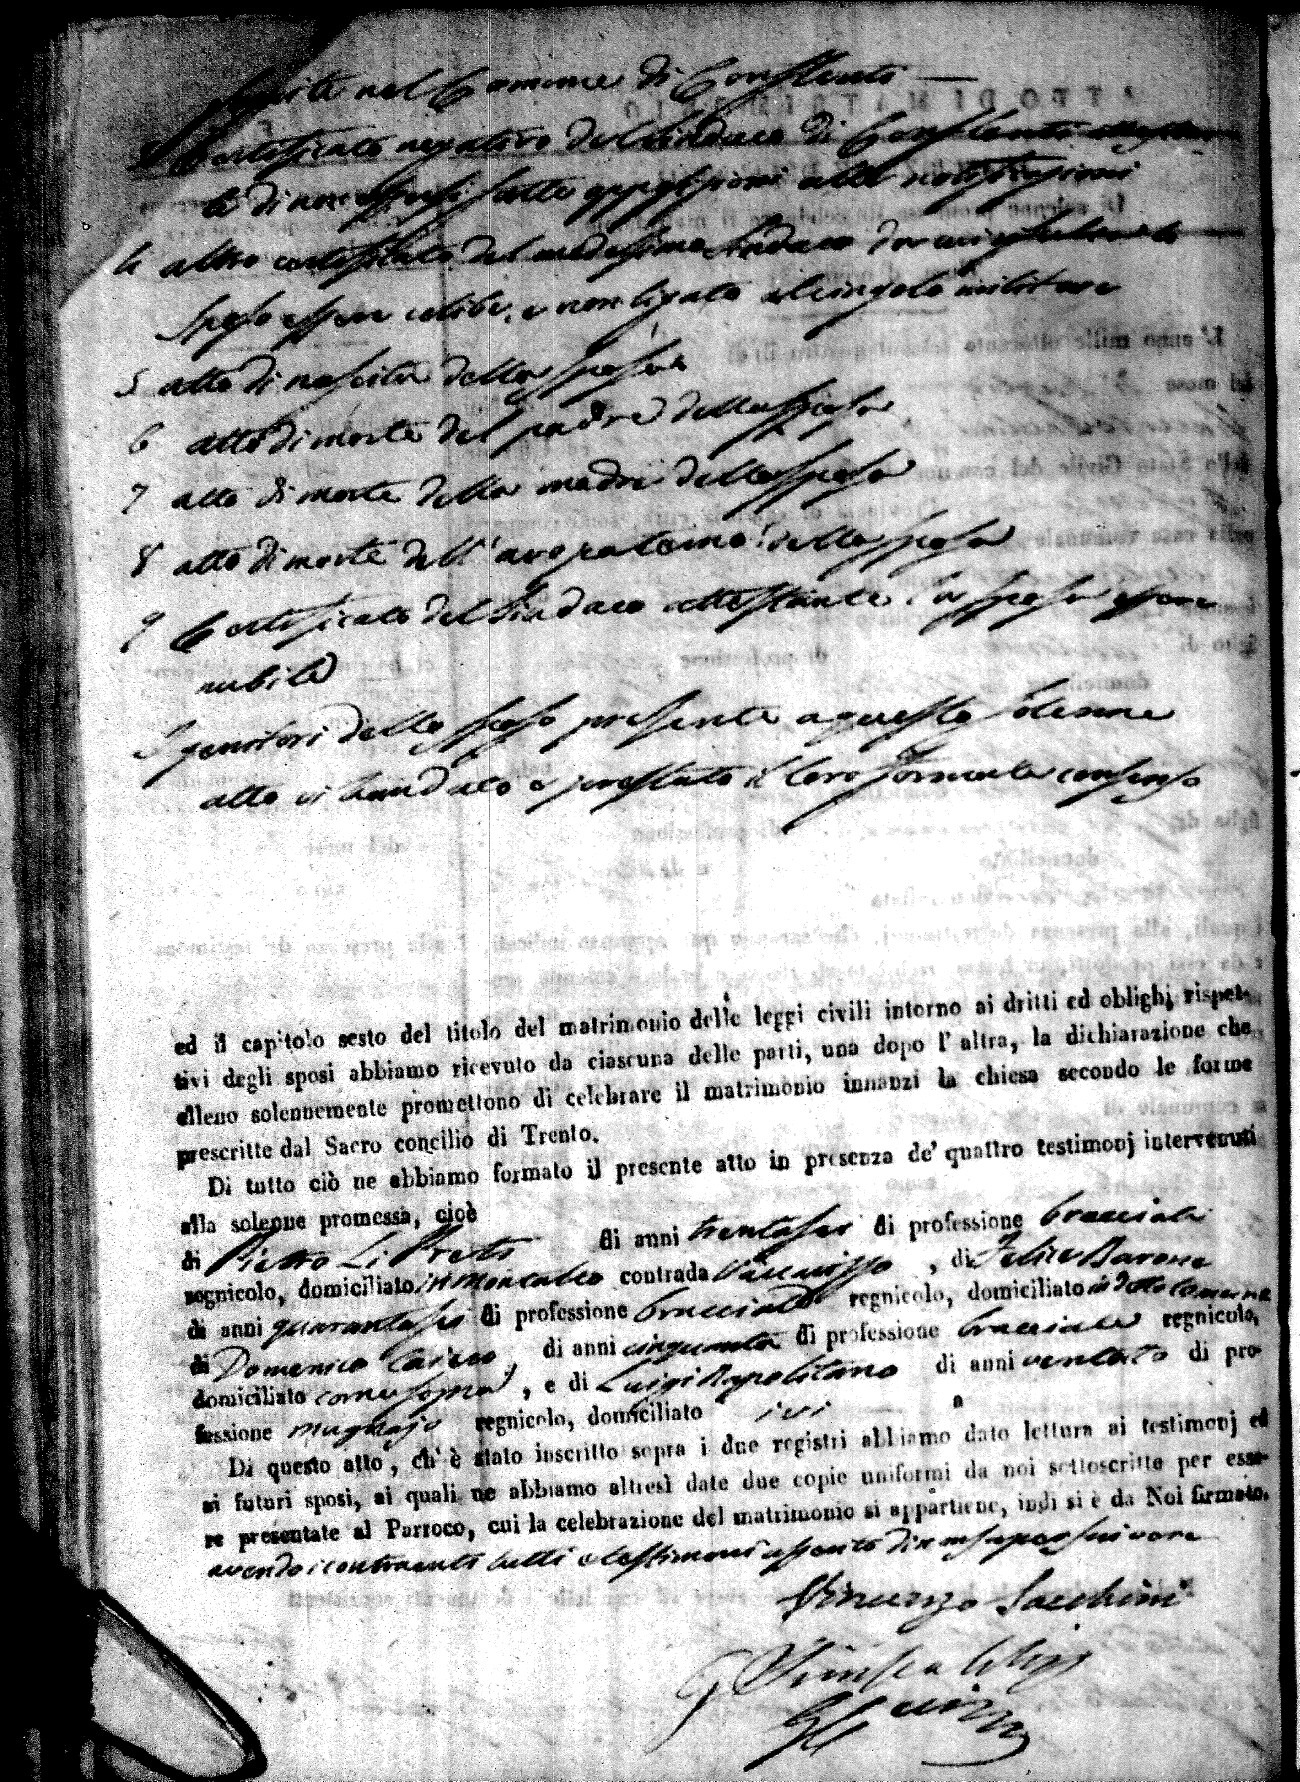 seguite nel Comune di Conflenti
3 Certificato negativo del Sindaco di Conflenti
di non essersi fatte opposizioni alle notificazioni
4 altro certificato del medesimo Sindaco
Sposo essere celibe, e non ligato al cingolo militare
5 atto di nascita della sposa
6 atto di morte del padre della sposa
7 atto di morte della madre della sposa
8 atto di morte dell'avo paterno della sposa
9 Certificato del Sindaco attestante la sposa essere
nubile
I genitori dello sposo presente a questo solenne
atto e prestato il loro formale consenso
ed il capitolo sesto del titolo del matrimonio delle leggi civili intorno ai dritti ed oblighi rispet-
tivi degli sposi abbiamo ricevuto da ciascuna delle parti, una dopo l'altra, la dichiarazione che
elleno solennemente promettono di celebrare il matrimonio innanzi la chiesa secondo le forme
prescritte dal Sacro concilio di Trento.
Di tutto ciò ne abbiamo formato il presente atto in presenza de' quattro testimonj intervenuti
alla solenne promessa, cioè
di Pietro Li Preti di anni trentasei di professione bracciale
regnicolo, domiciliato in contrada , di Felice Barone
di anni quarantasei di professione bracciale regnicolo, domiciliato in detto Comune
di Domenico , di anni cinquanta di professione bracciale regnicolo,
domiciliato come sopra , e di Luigi Napolitano di anni ventotto di pro-
fessione mugnajo regnicolo, domiciliato ivi
Di questo atto, ch' è stato inscritto sopra i due registri abbiamo dato lettura ai testimonj ed
ai futuri sposi, ai quali ne abbiamo altresì date due copie uniformi da noi sottoscritte per esse-
re presentate al Parroco, cui la celebrazione del matrimonio si appartiene, indi si è da Noi firmato.
avendo i contraenti tutti e testimoni assento di non saper scrivere
Vincenzo Sacchini